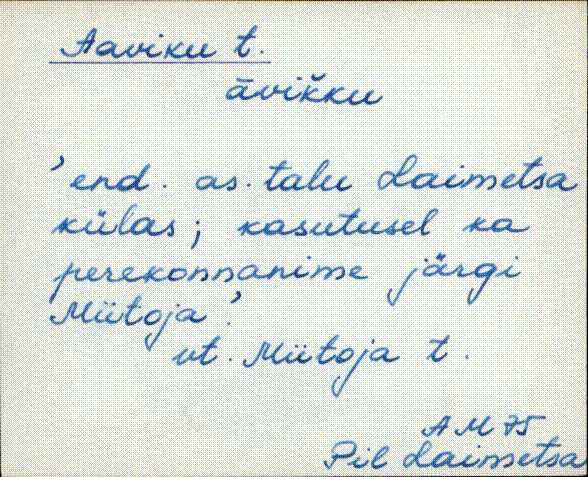 Aaviku t.
āvikku
'end. as. talu Laimetsa
külas; kasutusel ka
perekonnanime järgi
Miitoja'.
vt. Miitoja t.
AM 75
Pil Laimetsa